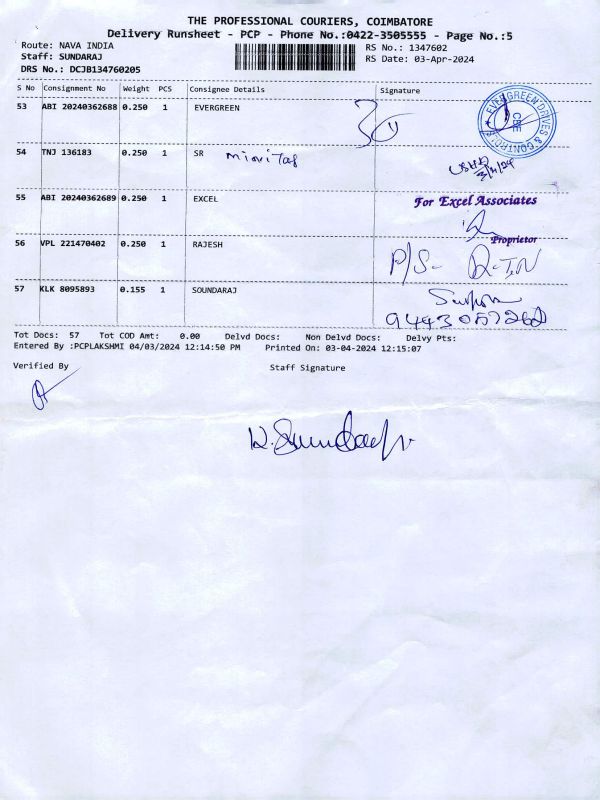 THE PROFESSIONAL COURIERS, COIMBATORE
Delivery Runsheet - PCP - Phone No.:0422-3505555 - Page No.:5
Route: NAVA INDIA
Staff: SUNDARAJ
DRS No.: DCJB134760205
RS No.: 1347602
RS Date: 03-Apr-2024
S No Consignment No Weight PCS Consignee Details Signature
53 ABI 20240362688 0.250 1 EVERGREEN
EVERGREEN DRIVES & CONTROLS
CBE
54 TNJ 136183 0.250 1 SR
3/4/24
55 ABI 20240362689 0.250 1 EXCEL
For Excel Associates
Proprietor
56 VPL 221470402 0.250 1 RAJESH
P/S-
57 KLK 8095893 0.155 1 SOUNDARAJ
Tot Docs: 57 Tot COD Amt: 0.00 Delvd Docs: Non Delvd Docs: Delvy Pts:
Entered By :PCPLAKSHMI 04/03/2024 12:14:50 PM Printed On: 03-04-2024 12:15:07
Verified By Staff Signature